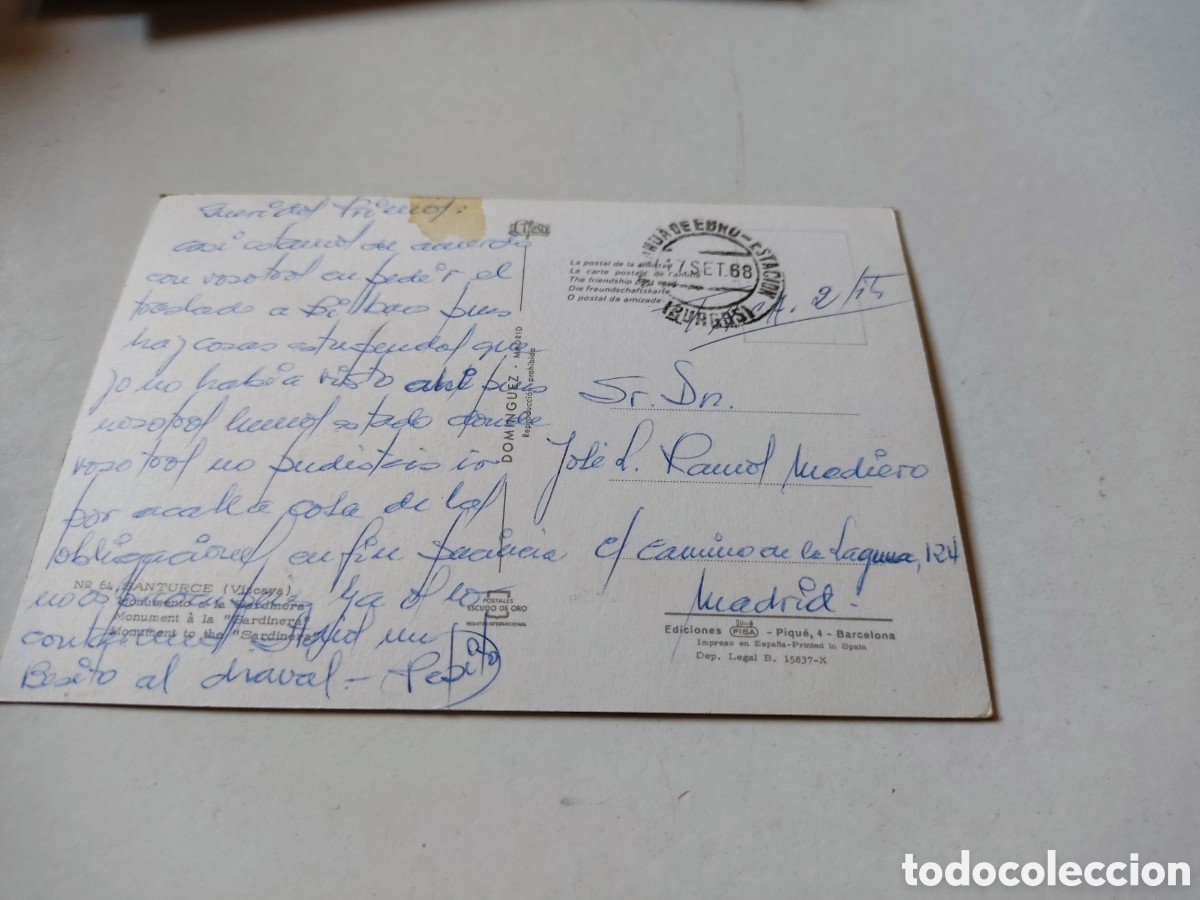 Queridos Primos:
casi estamos de acuerdo
con vosotros en pedir el
traslado a Bilbao pues
hay cosas estupendas que
yo no había visto pues
nosotros hemos estado donde
vosotros no pudisteis ir
por a cosa de las
obligaciones, en fin
Ya os lo
un
Besito al chaval - Pepito
Nº 64. SANTURCE (Vizcaya)
Monumento a la "Sardinera"
Monument à la "Sardinera"
Monument to the "Sardinera"
DOMINGUEZ - MADRID
Reproducción prohibida
POSTALES
ESCUDO DE ORO
REGISTRO INTERNACIONAL
La postal de la amistad
La carte postale de l'amitié
The friendship post card
Die Freundschaftskarte
O postal da amizade
MIRANDA DE EBRO - ESTACION
7 SET. 68
(BURGOS)
2/15
Sr. Dn.
José L. Ramos Madiero
c/ Camino de la Laguna, 124
Madrid.-
Ediciones FISA - Piqué, 4 - Barcelona
Impreso en España-Printed in Spain
Dep. Legal B. 15837-X
todocoleccion